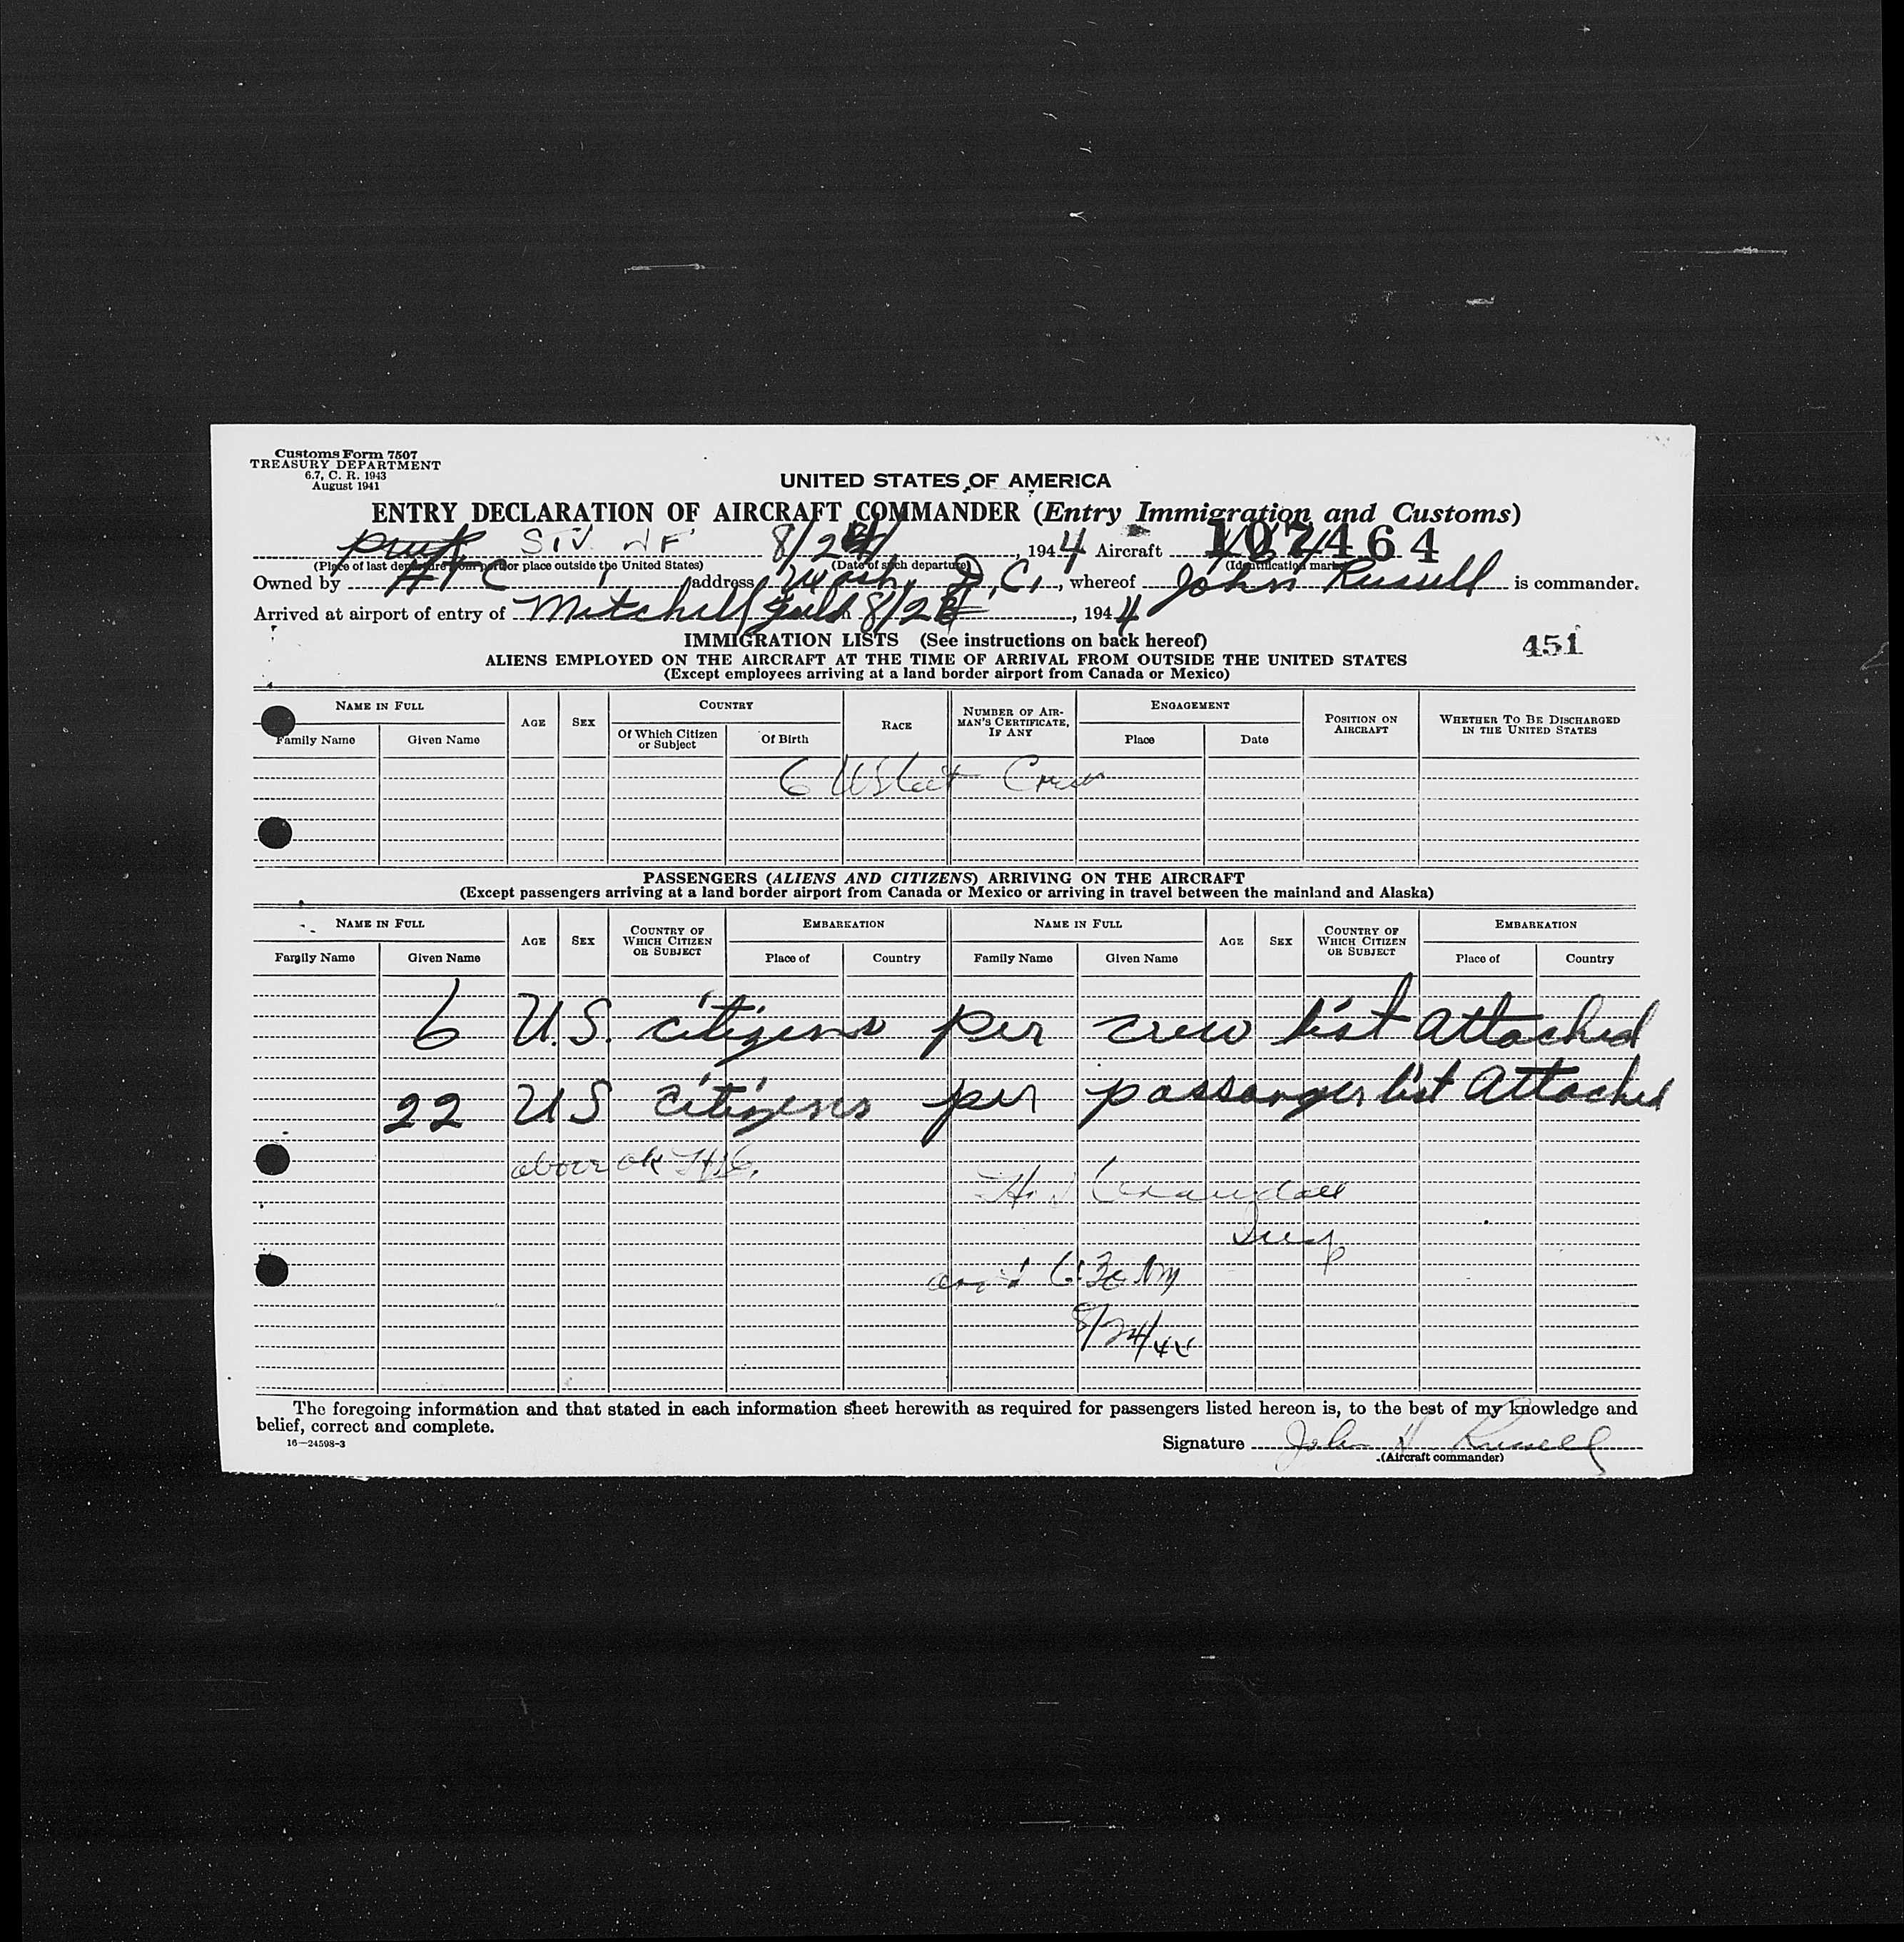 Customs Form 7507
TREASURY DEPARTMENT
6.7, C. R. 1943
August 1941
UNITED STATES OF AMERICA
ENTRY DECLARATION OF AIRCRAFT COMMANDER (Entry Immigration and Customs)
8/24, 1944 Aircraft 107464
(Place of last departure from port or place outside the United States) (Date of such departure) (Identification mark)
Owned by ATC, address Wash, D.C., whereof John Russell is commander.
Arrived at airport of entry of Mitchell Field 8/24, 1944
IMMIGRATION LISTS (See instructions on back hereof)
451
ALIENS EMPLOYED ON THE AIRCRAFT AT THE TIME OF ARRIVAL FROM OUTSIDE THE UNITED STATES
(Except employees arriving at a land border airport from Canada or Mexico)
NAME IN FULL AGE SEX COUNTRY RACE NUMBER OF AIRMAN'S CERTIFICATE, IF ANY ENGAGEMENT POSITION ON AIRCRAFT WHETHER TO BE DISCHARGED IN THE UNITED STATES
Family Name Given Name Of Which Citizen or Subject Of Birth Place Date
6 US Cit Crew
PASSENGERS (ALIENS AND CITIZENS) ARRIVING ON THE AIRCRAFT
(Except passengers arriving at a land border airport from Canada or Mexico or arriving in travel between the mainland and Alaska)
NAME IN FULL AGE SEX COUNTRY OF WHICH CITIZEN OR SUBJECT EMBARKATION NAME IN FULL AGE SEX COUNTRY OF WHICH CITIZEN OR SUBJECT EMBARKATION
Family Name Given Name Place of Country Family Name Given Name Place of Country
6 U.S. citizens per crew list Attached
22 US citizens per passanger list Attached
above ok
Crandall
Insp
6:30
8/24/44
The foregoing information and that stated in each information sheet herewith as required for passengers listed hereon is, to the best of my knowledge and
belief, correct and complete.
16—24598-3
Signature John H Russell
(Aircraft commander)